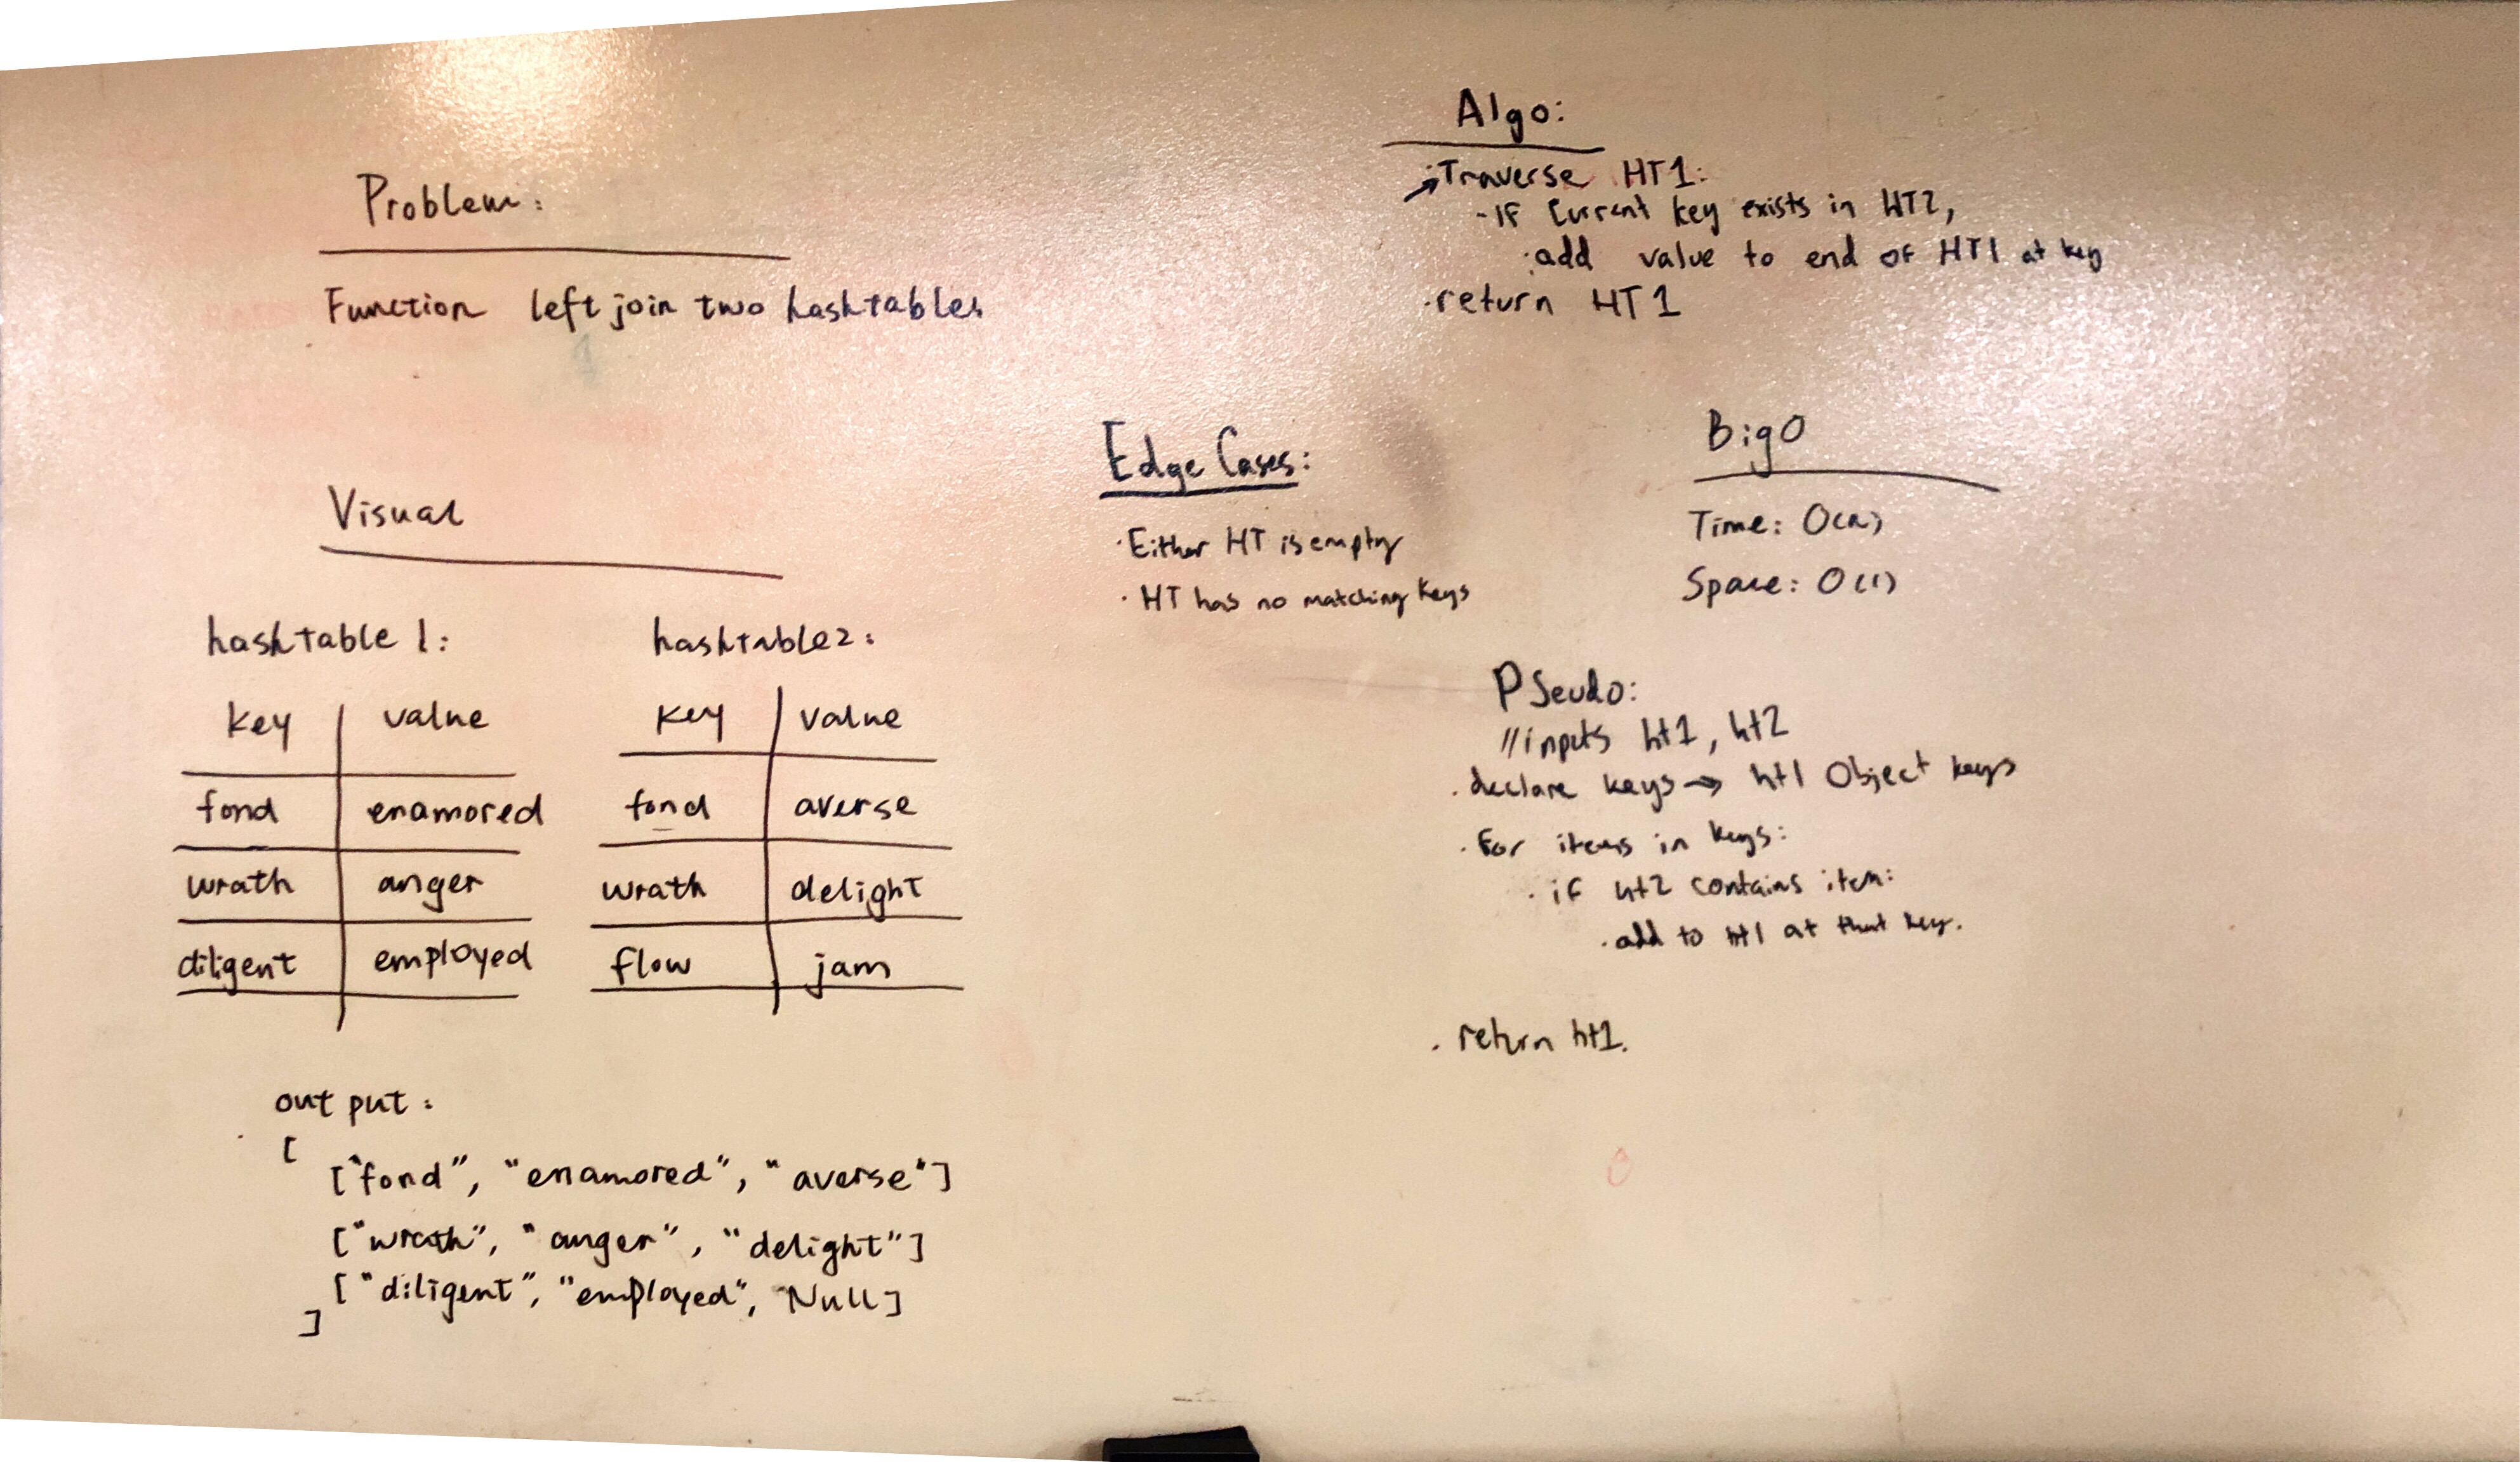 Problem:
Function left join two hashtables
Visual
hashtable 1:
key value
fond enamored
wrath anger
diligent employed
hashtable2:
key value
fond averse
wrath delight
flow jam
output:
[
["fond", "enamored", "averse"]
["wrath", "anger", "delight"]
["diligent", "employed", Null]
]
Edge Cases:
· Either HT is empty
· HT has no matching keys
Algo:
· Traverse HT1:
- IF Current key exists in HT2,
· add value to end of HT1 at key
· return HT1
Big O
Time: O(n)
Space: O(1)
Pseudo:
// inputs ht1, ht2
· declare keys → ht1 Object keys
· For items in keys:
· if ht2 contains item:
· add to ht1 at that key.
· return ht1.